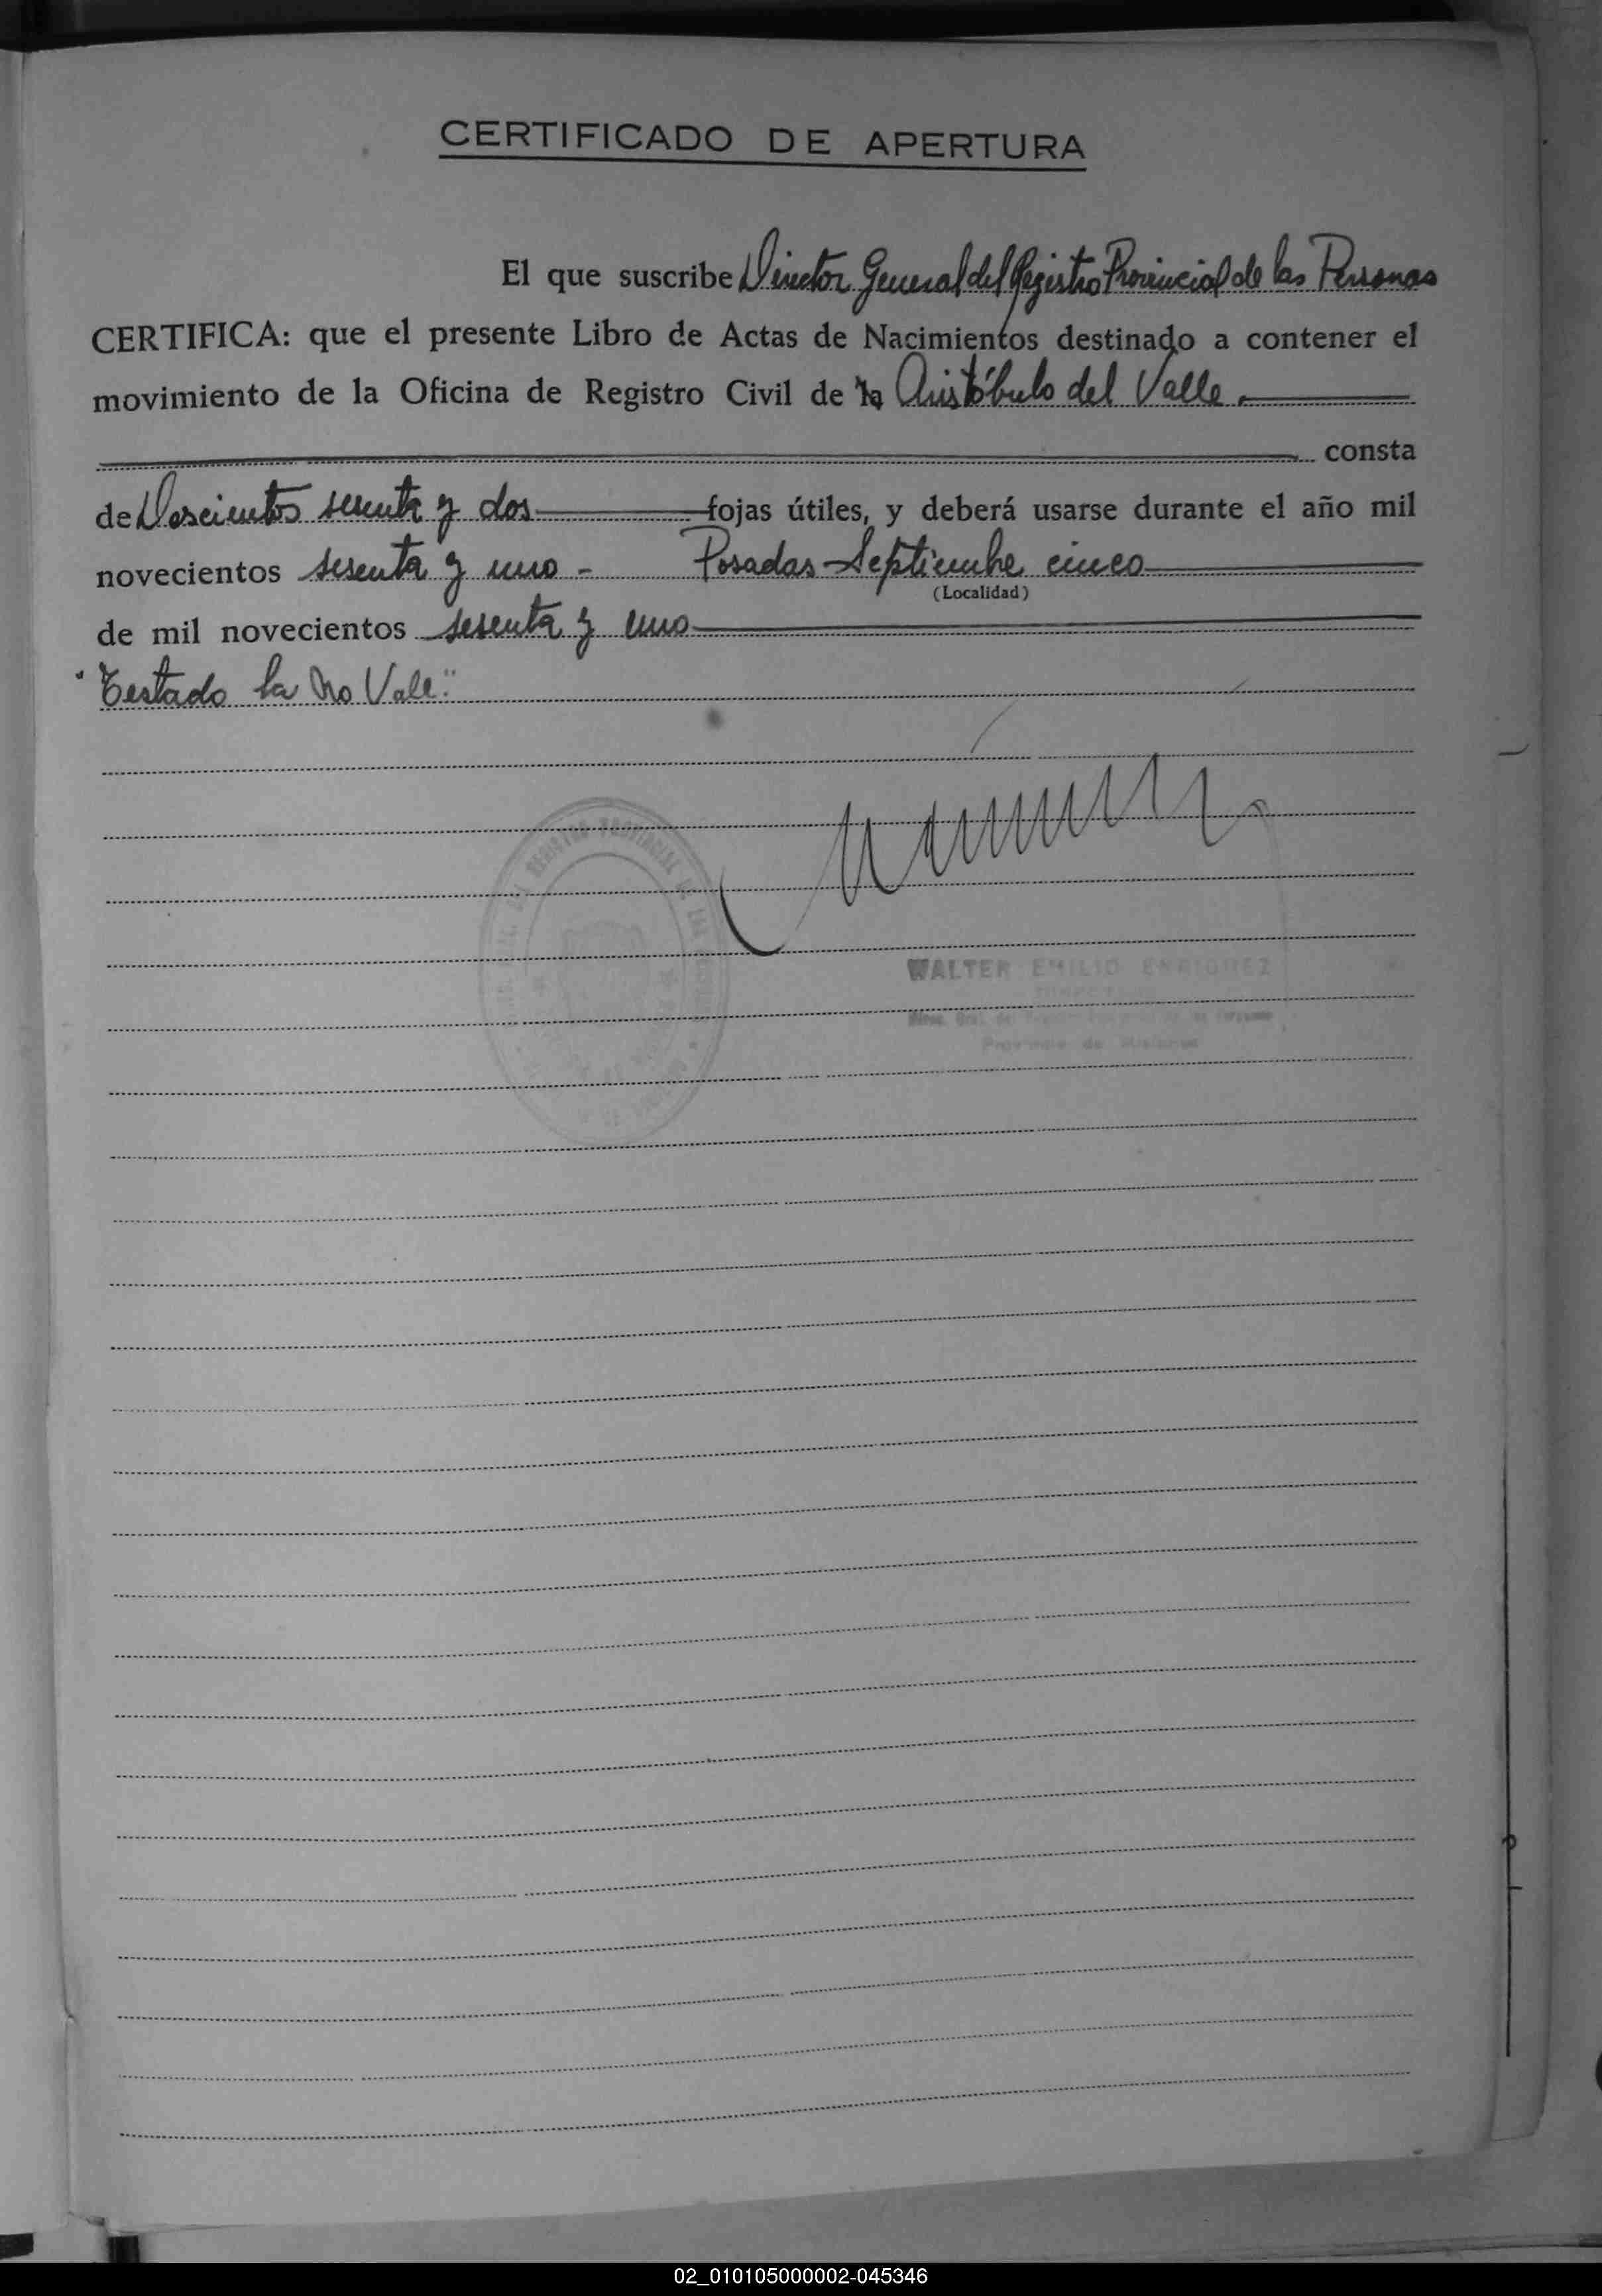 CERTIFICADO DE APERTURA
El que suscribe Director General del Registro Provincial de las Personas
CERTIFICA: que el presente Libro de Actas de Nacimientos destinado a contener el
movimiento de la Oficina de Registro Civil de la Aristóbulo del Valle.
consta
de Doscientos sesenta y dos fojas útiles, y deberá usarse durante el año mil
novecientos sesenta y uno - Posadas - Septiembre cinco
(Localidad)
de mil novecientos sesenta y uno
"Testado la No Vale"
REGISTRO PROVINCIAL DE LAS
WALTER EMILIO ENRIQUEZ
DIRECTOR
Provincia de Misiones
02_010105000002-045346